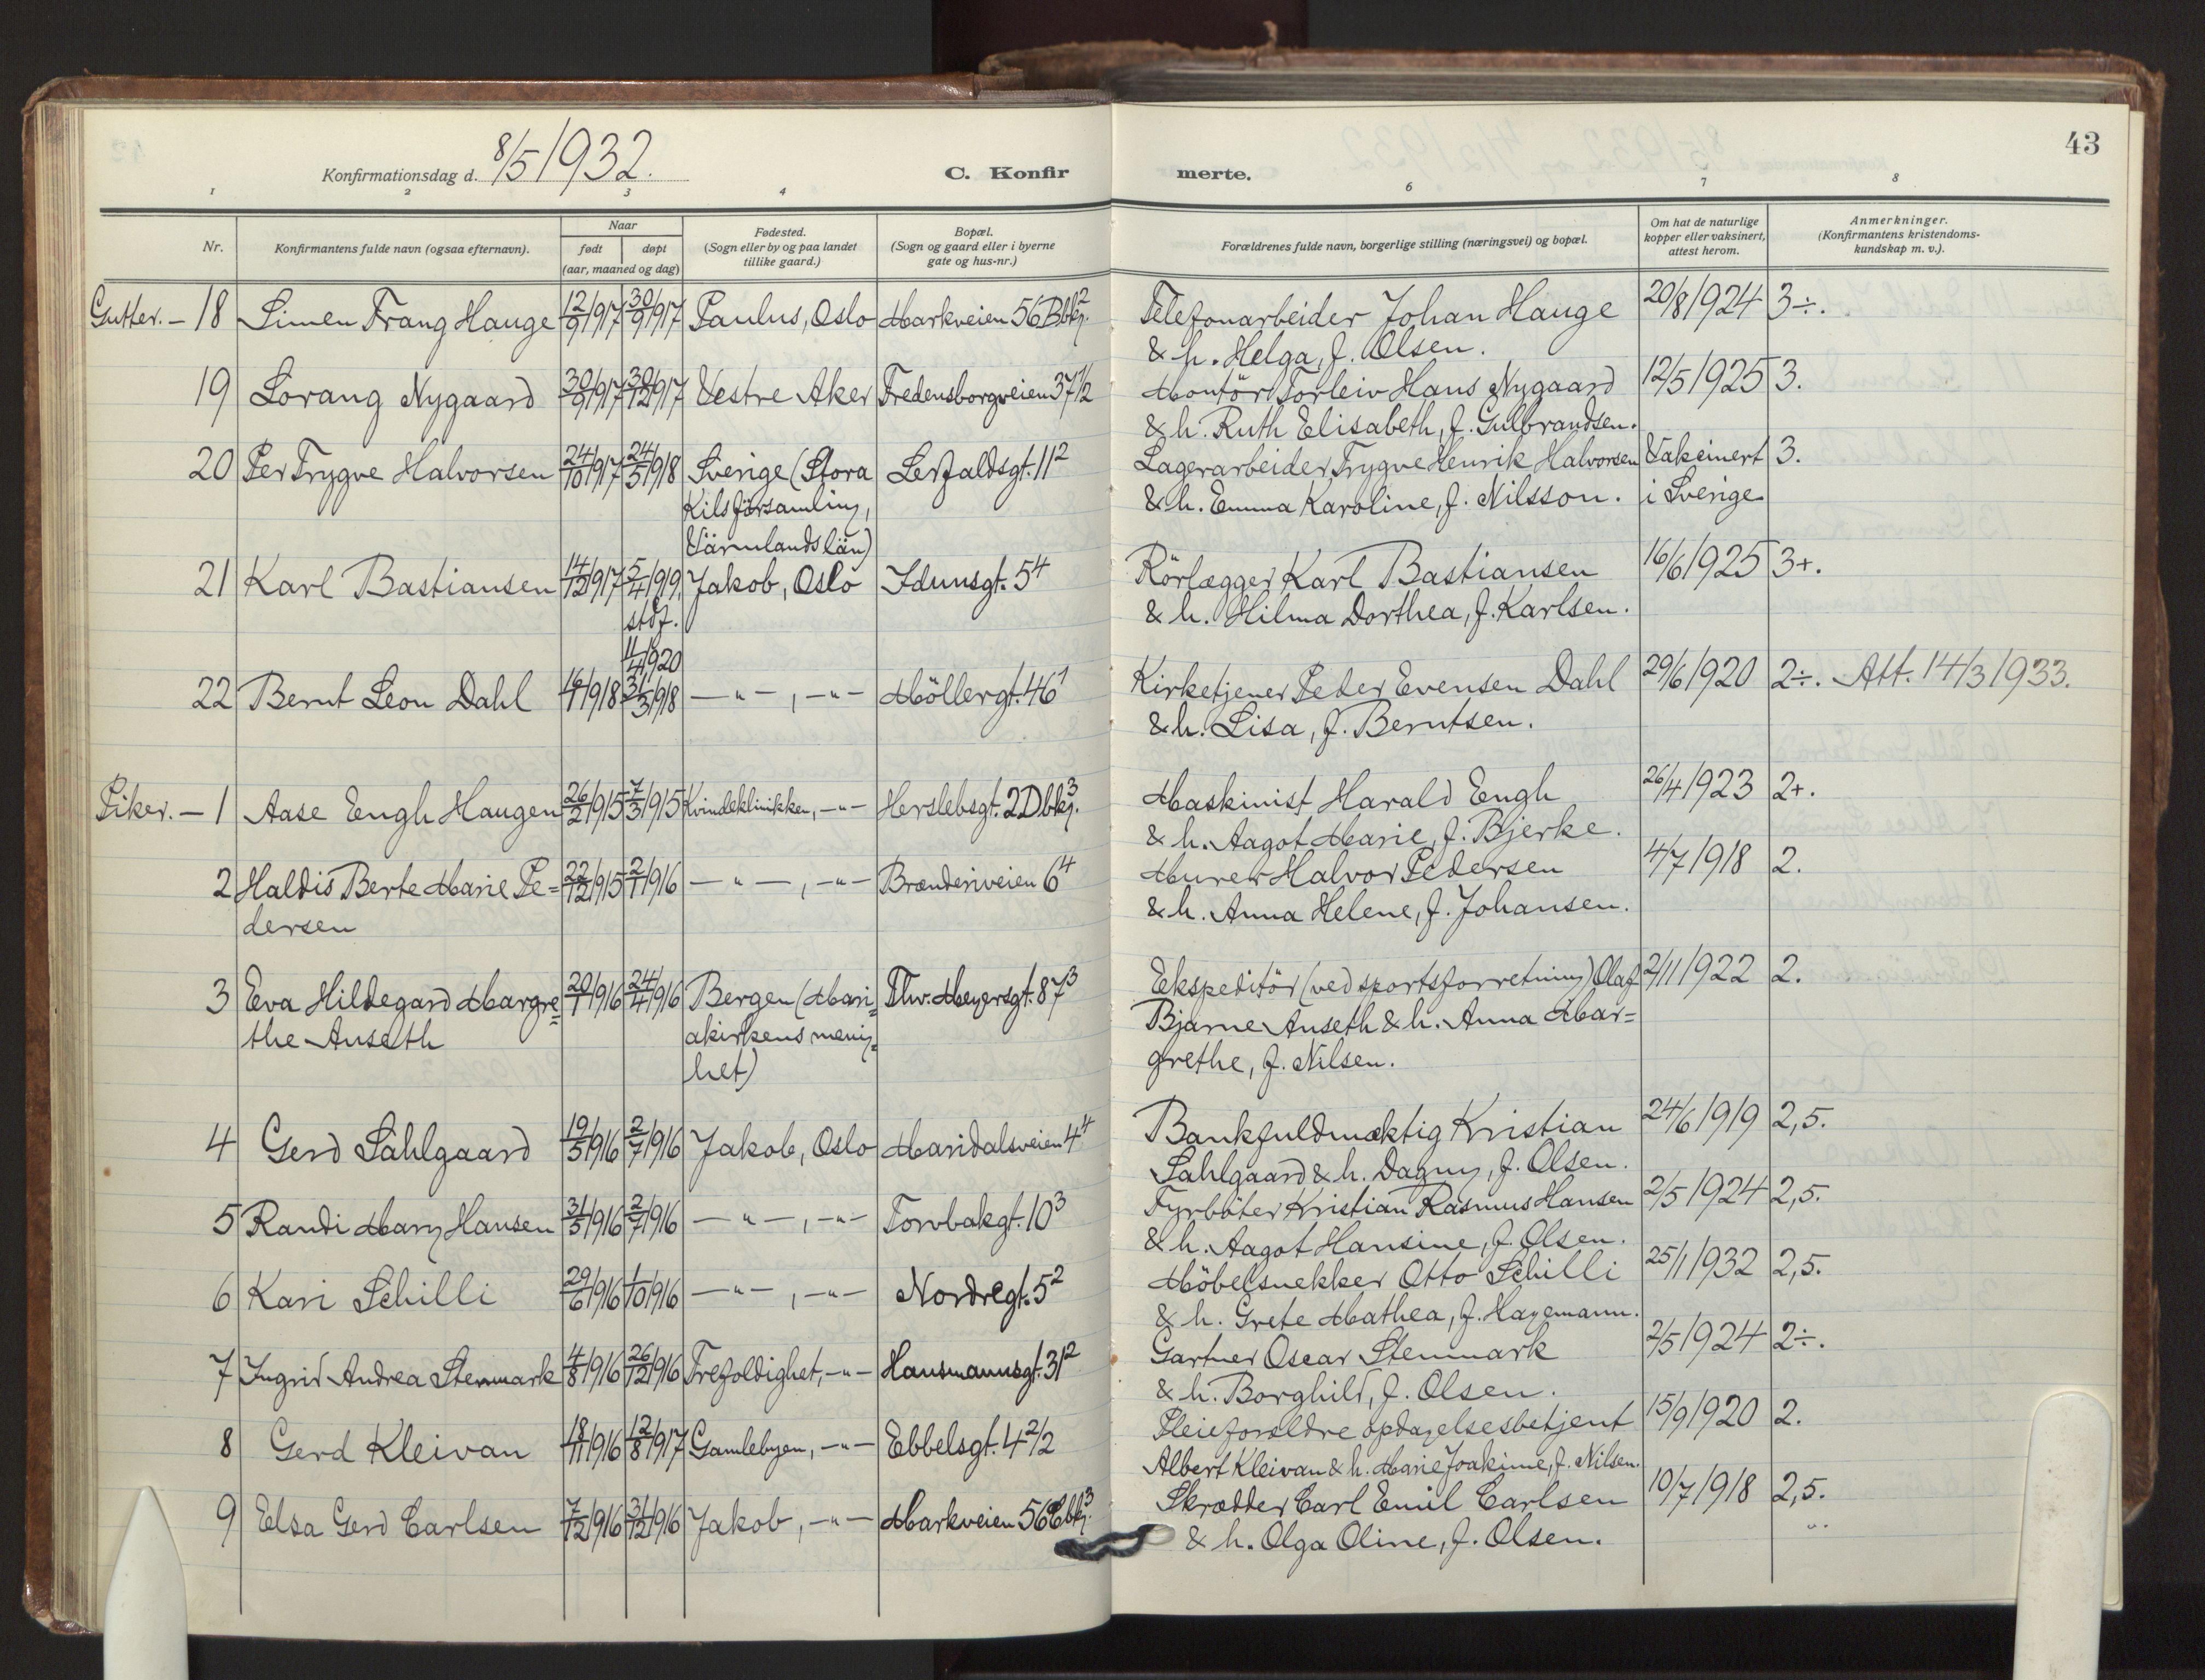 43
Konfirmationsdag d. 8/5 1932.
C. Konfirmerte.
1 2 3 4 5 6 7 8
Nr.
Konfirmantens fulde navn (ogsaa efternavn).
Naar
født
døpt
(aar, maaned og dag)
Fødested.
(Sogn eller by og paa landet
tillike gaard.)
Bopæl.
(Sogn og gaard eller i byerne
gate og hus-nr.)
Forældrenes fulde navn, borgerlige stilling (næringsvei) og bopæl.
Om hat de naturlige
kopper eller vaksinert,
attest herom.
Anmerkninger.
(Konfirmantens kristendoms-
kundskap m. v.).
Gutter. – 18 Simen Frang Hauge 12/9 1917 30/9 1917 Paulus, Oslo Markveien 56B bkg.2 Telefonarbeider Johan Hauge 20/8 1924 3÷.
& h. Helga, f. Olsen.
19 Lorang Nygaard 30/9 1917 30/12 1917 Vestre Aker Fredensborgveien 37 1/2 Montör Torleiv Hans Nygaard 12/5 1925 3.
& h. Ruth Elisabeth, f. Gulbrandsen.
20 Per Trygve Halvorsen 24/10 1917 24/5 1918 Sverige (Stora Lerfaldsgt. 11 2 Lagerarbeider Trygve Henrik Halvorsen Vaksinert 3.
Kils församling, & h. Emma Karoline, f. Nilsson. i Sverige
Värmlands län)
21 Karl Bastiansen 14/12 1917 5/4 1919. Jakob, Oslo Idunsgt. 5 4 Rörlægger Karl Bastiansen 16/6 1925 3+.
stdf. & h. Hilma Dorthea, f. Karlsen.
11/4 1920
22 Bernt Leon Dahl 16/1 1918 31/3 1918 — " — , — " — Möllergt. 46 1 Kirketjener Peder Evensen Dahl 29/6 1920 2÷. Att. 14/3 1933.
& h. Lisa, f. Berntsen.
Piker. – 1 Aase Engh Haugen 26/2 1915 7/3 1915 Kvindeklinikken, — " — Herslebsgt. 2D bkg.3 Maskinist Harald Engh 26/4 1923 2+.
& h. Aagot Marie, f. Bjerke.
2 Haldis Berte Marie Pe= 22/12 1915 2/1 1916 — " — , — " — Brænderiveien 6 4 Murer Halvor Pedersen 4/7 1918 2.
dersen & h. Anna Helene, f. Johansen.
3 Eva Hildegard Margre= 20/1 1916 24/4 1916 Bergen (Mari= Thv. Meyersgt. 87 3 Ekspeditör (ved sportsforretning) Olaf 2/11 1922 2.
the Anseth akirkens menig= Bjarne Anseth & h. Anna Mar=
het) grethe, f. Nilsen.
4 Gerd Sahlgaard 19/5 1916 2/7 1916 Jakob, Oslo Maridalsveien 4 4 Bankfuldmæktig Kristian 24/6 1919 2,5.
Sahlgaard & h. Dagny, f. Olsen.
5 Randi Mary Hansen 31/5 1916 2/7 1916 — " — , — " — Torvbakgt. 10 3 Fyrböter Kristian Rasmus Hansen 2/5 1924 2,5.
& h. Aagot Hansine, f. Olsen.
6 Kari Schilli 29/6 1916 1/10 1916 — " — , — " — Nordregt. 5 2 Möbelsnekker Otto Schilli 25/1 1932 2,5.
& h. Grete Mathea, f. Hagemann.
7 Ingrid Andrea Stenmark 4/8 1916 26/12 1916 Trefoldighet, — " — Hausmannsgt. 31 2 Gartner Oscar Stenmark 2/5 1924 2÷.
& h. Borghild, f. Olsen.
8 Gerd Kleivan 18/11 1916 12/8 1917 Gamlebyen, — " — Ebbelsgt. 4 2/2 Pleieforældre opdagelsesbetjent 15/9 1920 2.
Albert Kleivan & h. Marie Joakime, f. Nilsen.
9 Elsa Gerd Carlsen 7/12 1916 31/12 1916 Jakob, — " — Markveien 56C bkg.3 Skrædder Carl Emil Carlsen 10/7 1918 2,5.
& h. Olga Oline, f. Olsen.